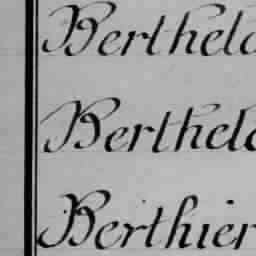 Berthelo
Berthelo
Berthier